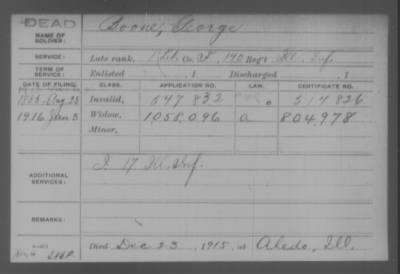 DEAD
NAME OF SOLDIER: Boone, George
SERVICE: Late rank, Co. F, 140 Reg't Ill. Inf.
TERM OF SERVICE: Enlisted , 1 Discharged , 1
DATE OF FILING. CLASS. APPLICATION NO. LAW. CERTIFICATE NO.
Aug 25 Invalid, 547 832 514 826
1916 Jan 3 Widow, 1,058,096 a 804,978
Minor,
ADDITIONAL SERVICES: I 17 Ill. Inf.
REMARKS:
Died Dec 23, 1915, at Aledo, Ill.